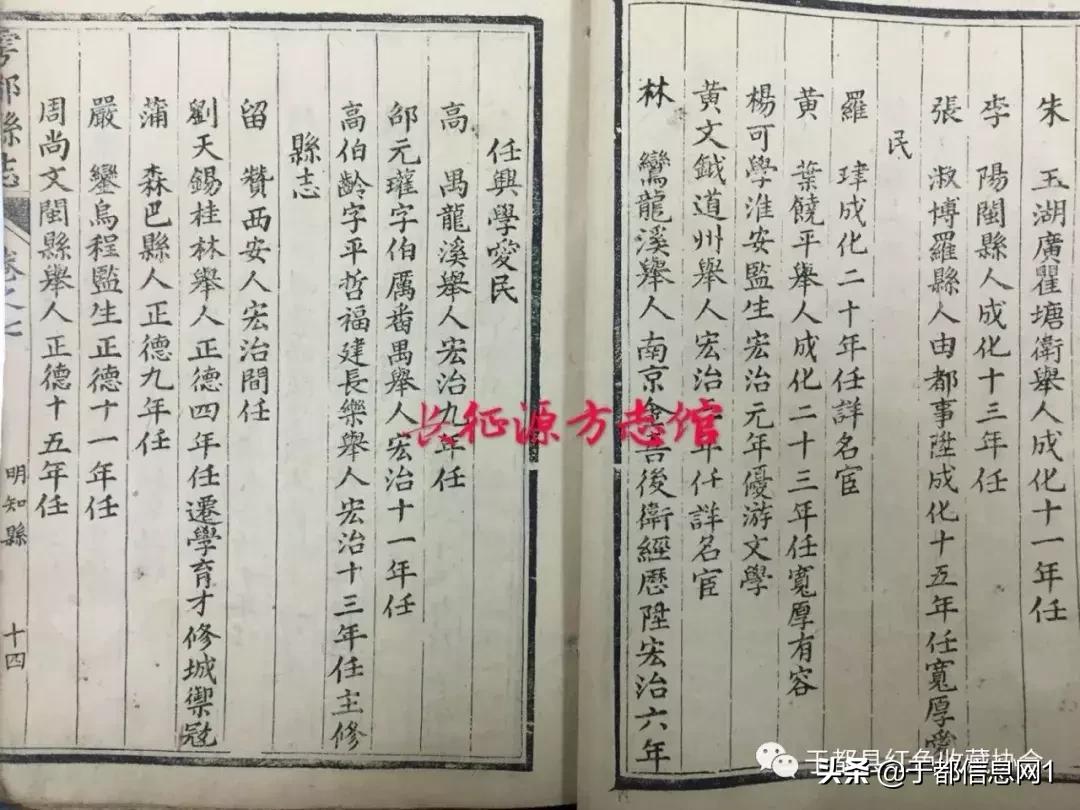 朱　玉湖廣瞿塘衛舉人成化十一年任
李　陽閩縣人成化十三年任
張　淑博羅縣人由都事陞成化十五年任寬厚愛
民
羅　瑋成化二十年任詳名宦
黄　葉饒平舉人成化二十三年任寬厚有容
楊可學淮安監生宏治元年優游文學
黄文鉞道州舉人宏治二年任詳名宦
林　鸞龍溪舉人南京 後衛經歷陞宏治六年
任興學愛民
高　禺龍溪舉人宏治九年任
邵元瓘字伯厲番禺舉人宏治十一年任
高伯齡字平哲福建長樂舉人宏治十三年任主修
縣志
留　贊西安人宏治間任
劉天錫桂林舉人正德四年任遷學育才修城禦冦
蒲　森巴縣人正德九年任
嚴　鑾烏程監生正德十一年任
周尚文閩縣舉人正德十五年任
雩都縣志　卷之七　明知縣　十四
长征源方志馆
于都县红色收藏协会
头条@于都信息网1